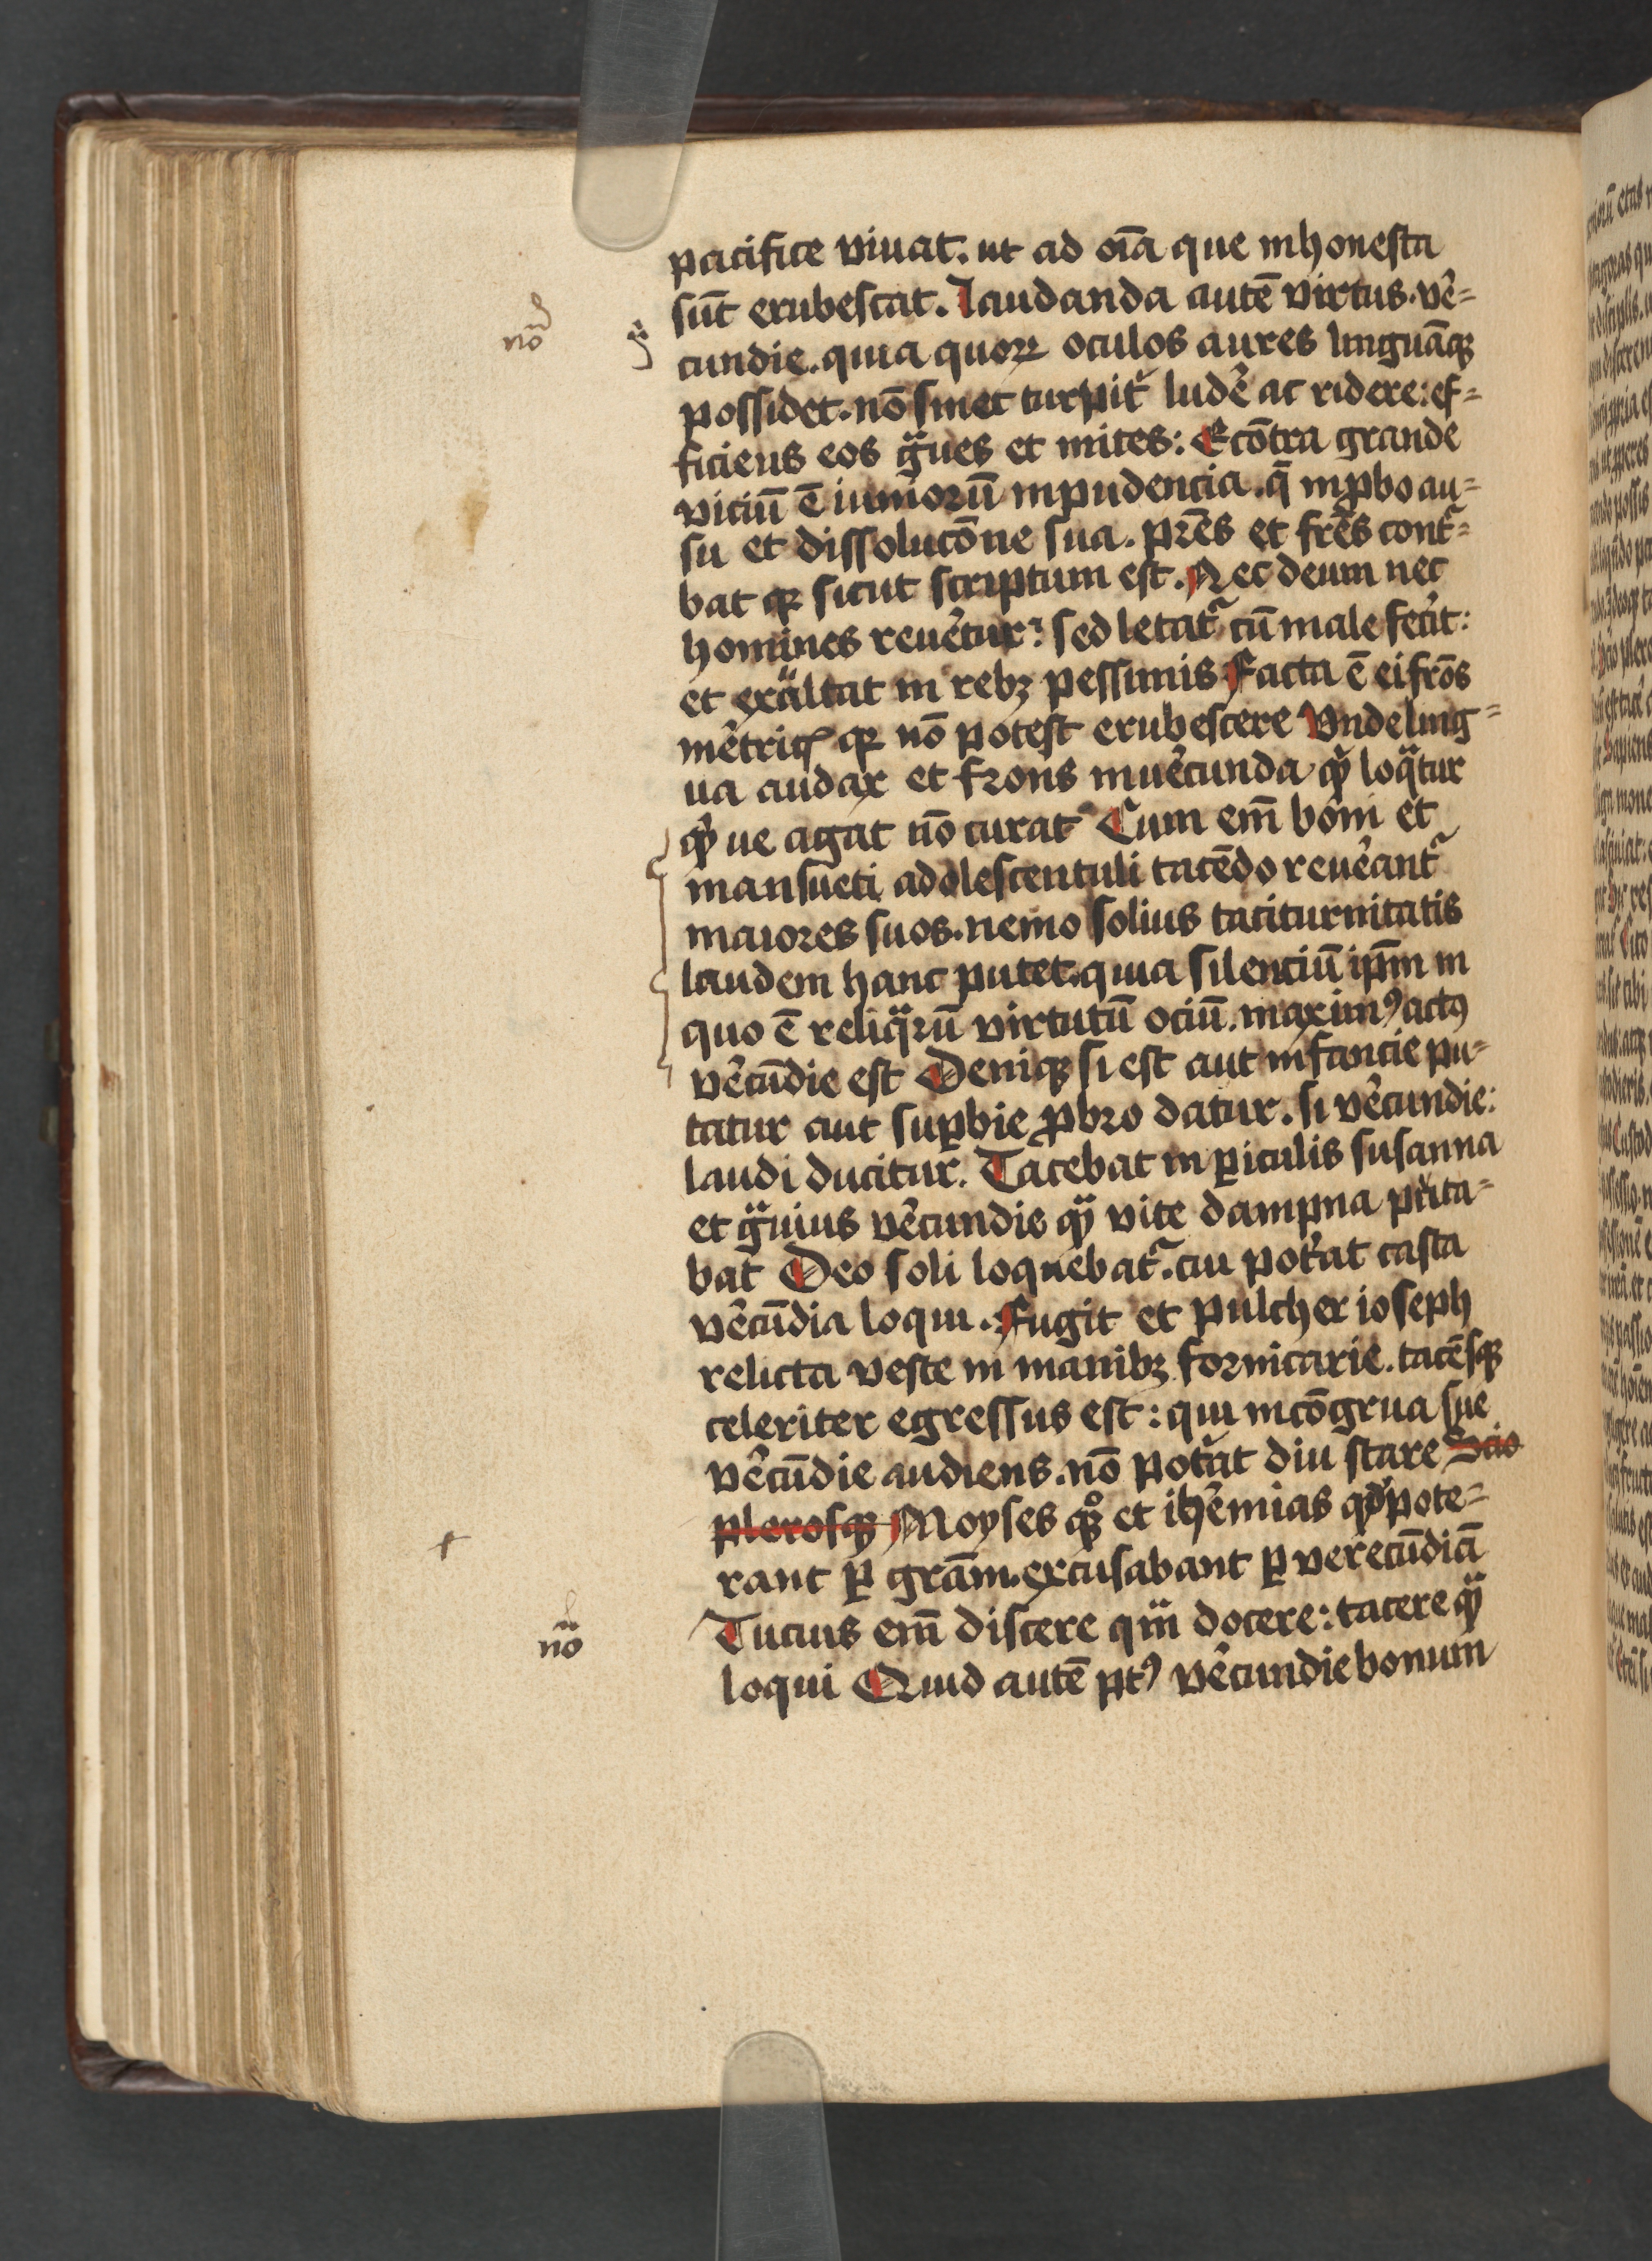 pacifice viuat. ut ad oīa que inhonesta
sūt erubescat. laudanda autē virtus. v̄e=
cundie. quia quoꝝ oculos aures linguāqꝫ
possidet. nō sinet turpit̄ ludē ac ridere: ef=
ficiens eos gᵃues et mites: Ecōtra grande
viciū ē iuniorū inpudencia. q̄ inꝓbo au=
su et dissolucōne sua. pr̄es et fr̄es cont̄=
bat qꝫ sicut scriptum est. Nec deum nec
homines reuētur: sed letat̄ cū male fecīt:
et exultat in rebꝫ pessimis Facta ē ei frōs
mētricꝭ qꝫ nō potest erubescere Vnde ling=
ua audax et frons inuēcunda qͥd loqᵃtur
qͥd ue agat nō curat Cum em̄ boni et
mansueti adolescentuli tacēdo reuēant̄
maiores suos. nemo solius taciturnitatis
laudem hanc putet. quia silenciū ip̄m in
quo ē reliqᵃrū virtutū ociū. maximꝰ actꝰ
vēcūdie est Deniqꝫ si est aut infancie pu=
tatur aut suꝑbie ꝓbro datur. si vēcundie:
laudi ducitur. Tacebat in ꝑiculis susanna
et gᵃuius vēcundie qᵃ vite dampna putа=
bat Deo soli loquebat̄. cui pot̄at casta
vēcūdia loqui. Fugit et pulcher ioseph
relicta veste in manibꝫ fornicarie. tacēsqꝫ
celeriter egressus est: qui incōgrua sue
vēcūdie audiens. nō pot̄at diu stare Scio
plerosqꝫ Moyses qꝫͦ et ih̄emias qd̄ pote=
rant ꝑ grām. excusabant ꝑ verecūdiā
Tucius em̄ discere qᵃm docere: tacere qᵃ
loqui Quid autē ptꝰ vēcundie bonum
nō
nō